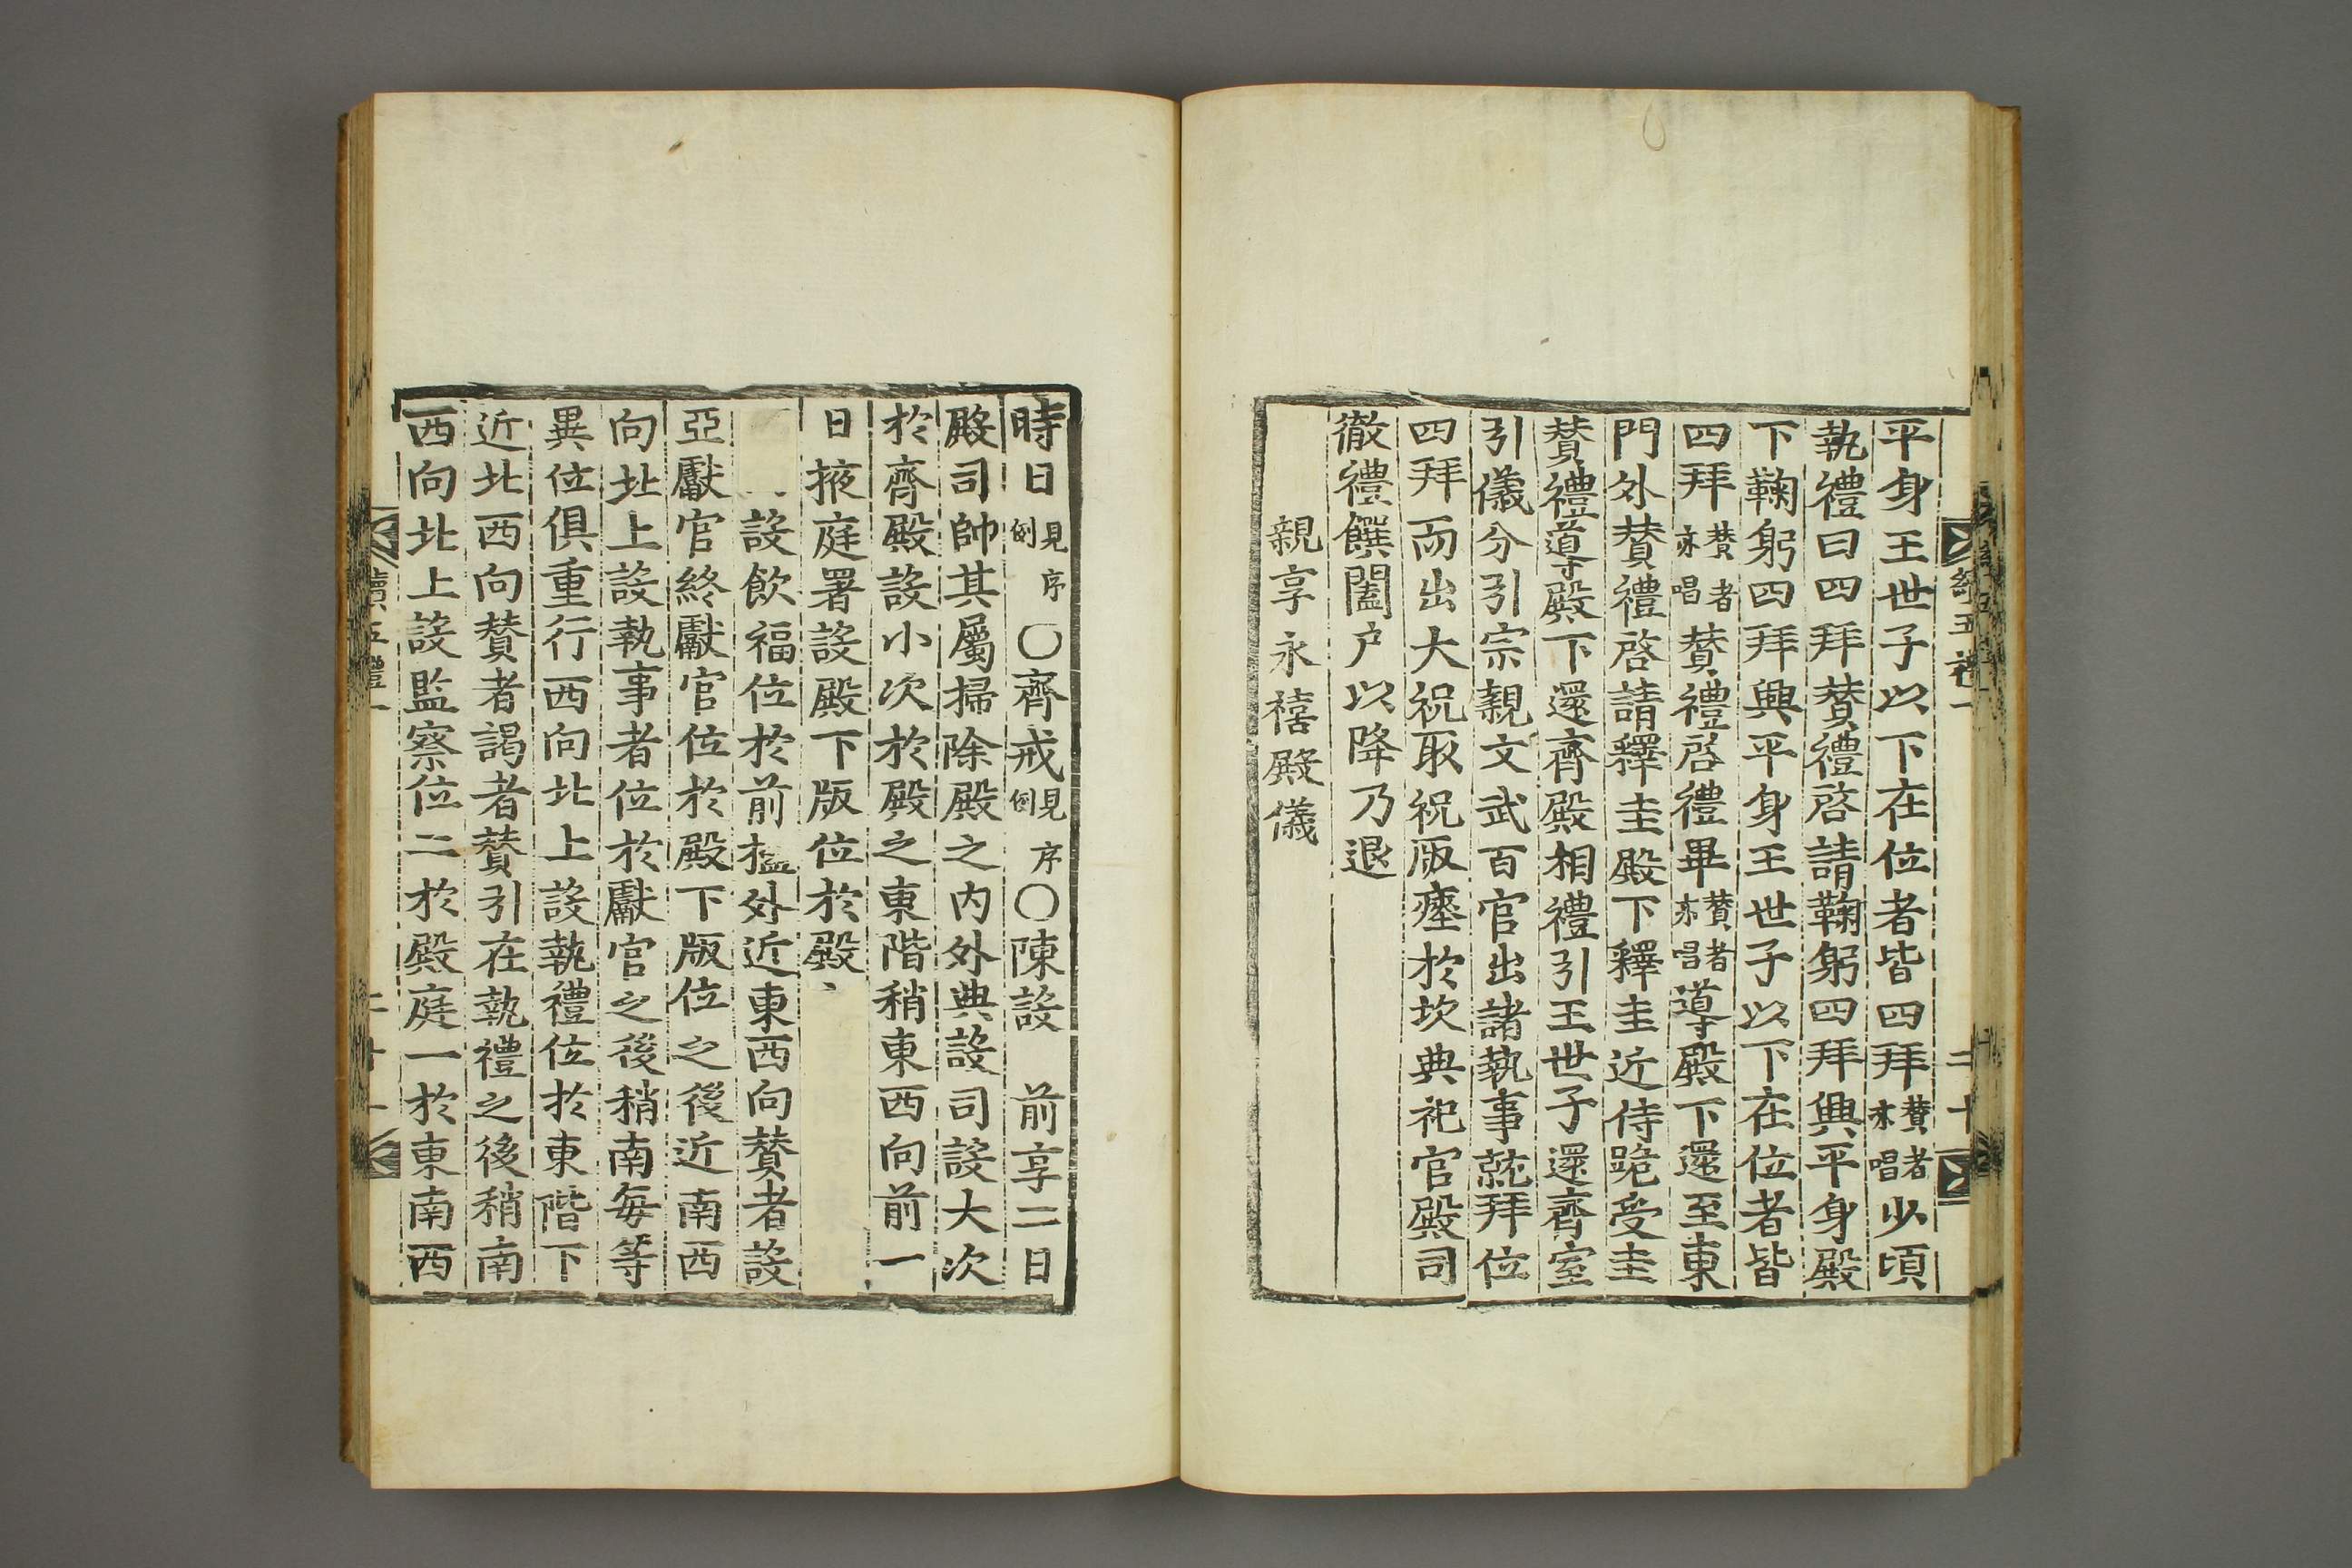 平身王世子以下在位者皆四拜贊者亦唱少頃
執禮曰四拜贊禮啓請鞠躬四拜興平身殿
下鞠躬四拜興平身王世子以下在位者皆
四拜贊者亦唱贊禮啓禮畢贊者亦唱導殿下還至東
門外贊禮啓請釋圭殿下釋圭近侍跪受圭
贊禮導殿下還齊殿相禮引王世子還齊室
引儀分引宗親文武百官出諸執事就拜位
四拜而出大祝取祝版瘞於坎典祀官殿司
徹禮饌闔户以降乃退
親享永禧殿儀
時日見序例〇齊戒見序例〇陳設 前享二日
殿司帥其屬掃除殿之内外典設司設大次
於齊殿設小次於殿之東階稍東西向前一
日掖庭署設殿下版位於殿
設飲福位於前楹外近東西向贊者設
亞獻官終獻官位於殿下版位之後近南西
向北上設執事者位於獻官之後稍南每等
異位俱重行西向北上設執禮位於東階下
近北西向贊者謁者贊引在執禮之後稍南
西向北上設監察位二於殿庭一於東南西